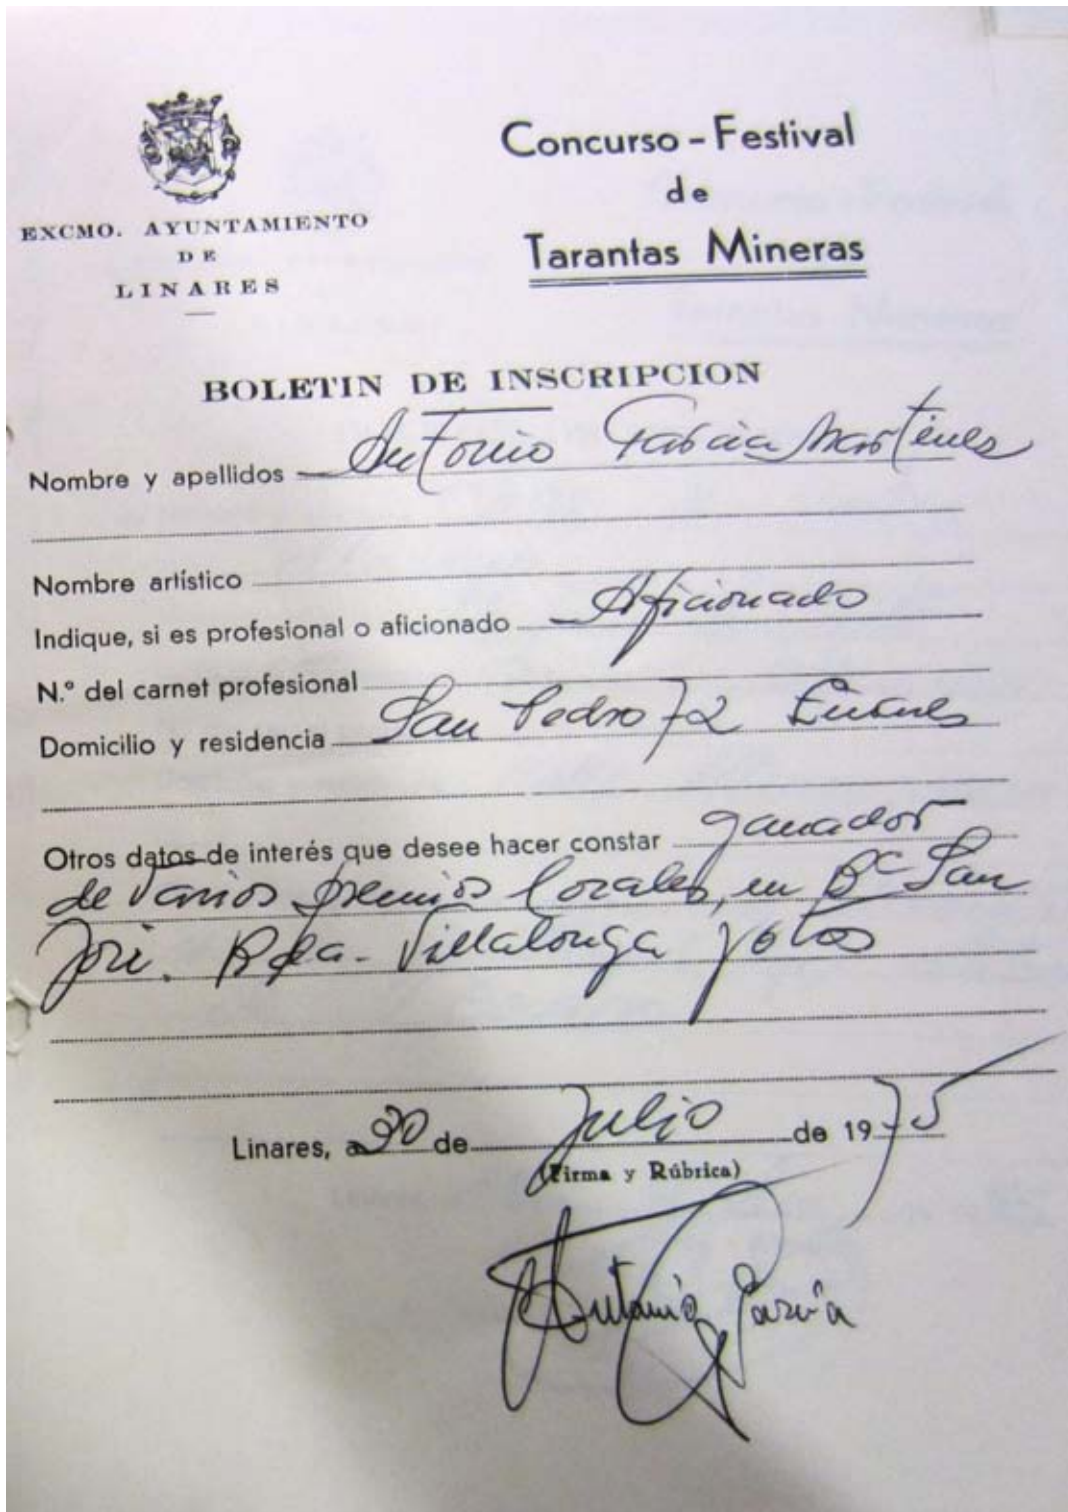 EXCMO. AYUNTAMIENTO
DE
LINARES
Concurso - Festival
de
Tarantas Mineras
BOLETIN DE INSCRIPCION
Nombre y apellidos Antonio Garcia Martines
Nombre artístico
Indique, si es profesional o aficionado Aficionado
N.º del carnet profesional
Domicilio y residencia San Pedro 72 Linares
Otros datos de interés que desee hacer constar ganador
de varios premios locales, en Bº San
José. Villalonga y otros
Linares, a de Julio de 1975
(Firma y Rúbrica)
Antonio García